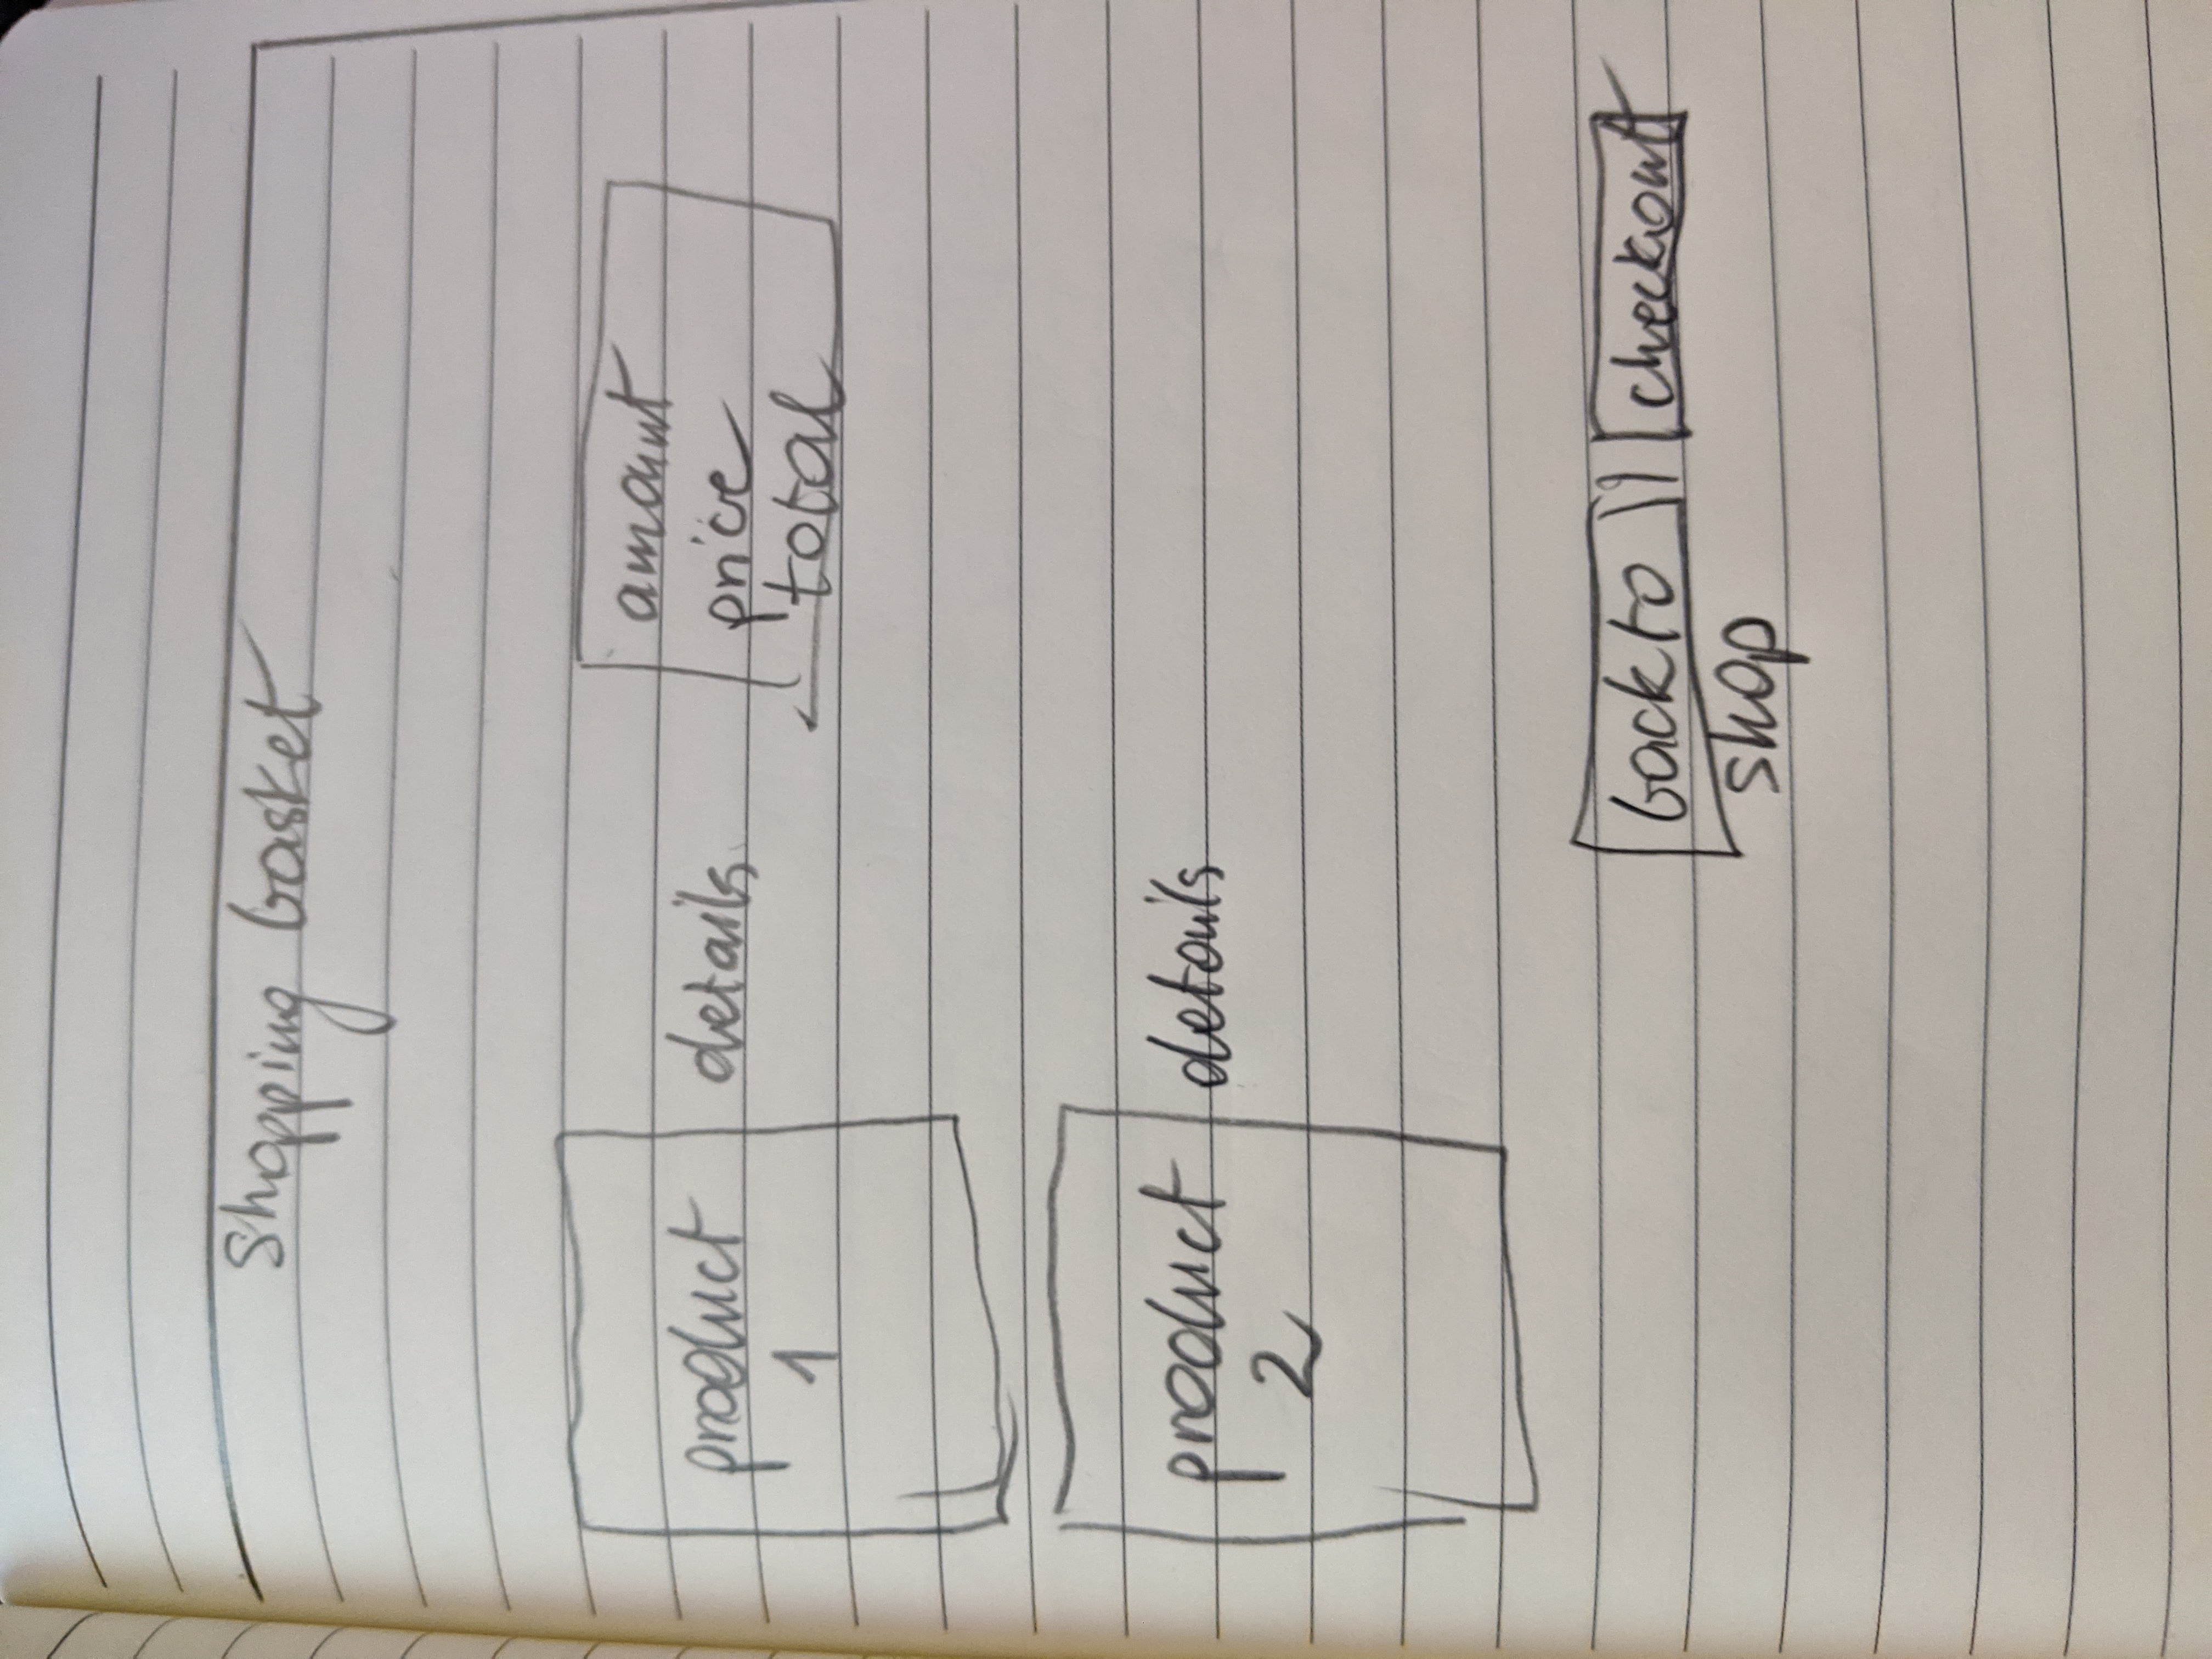 Shopping basket
product
1
details
amount
price
total
product
2
details
back to
shop
checkout